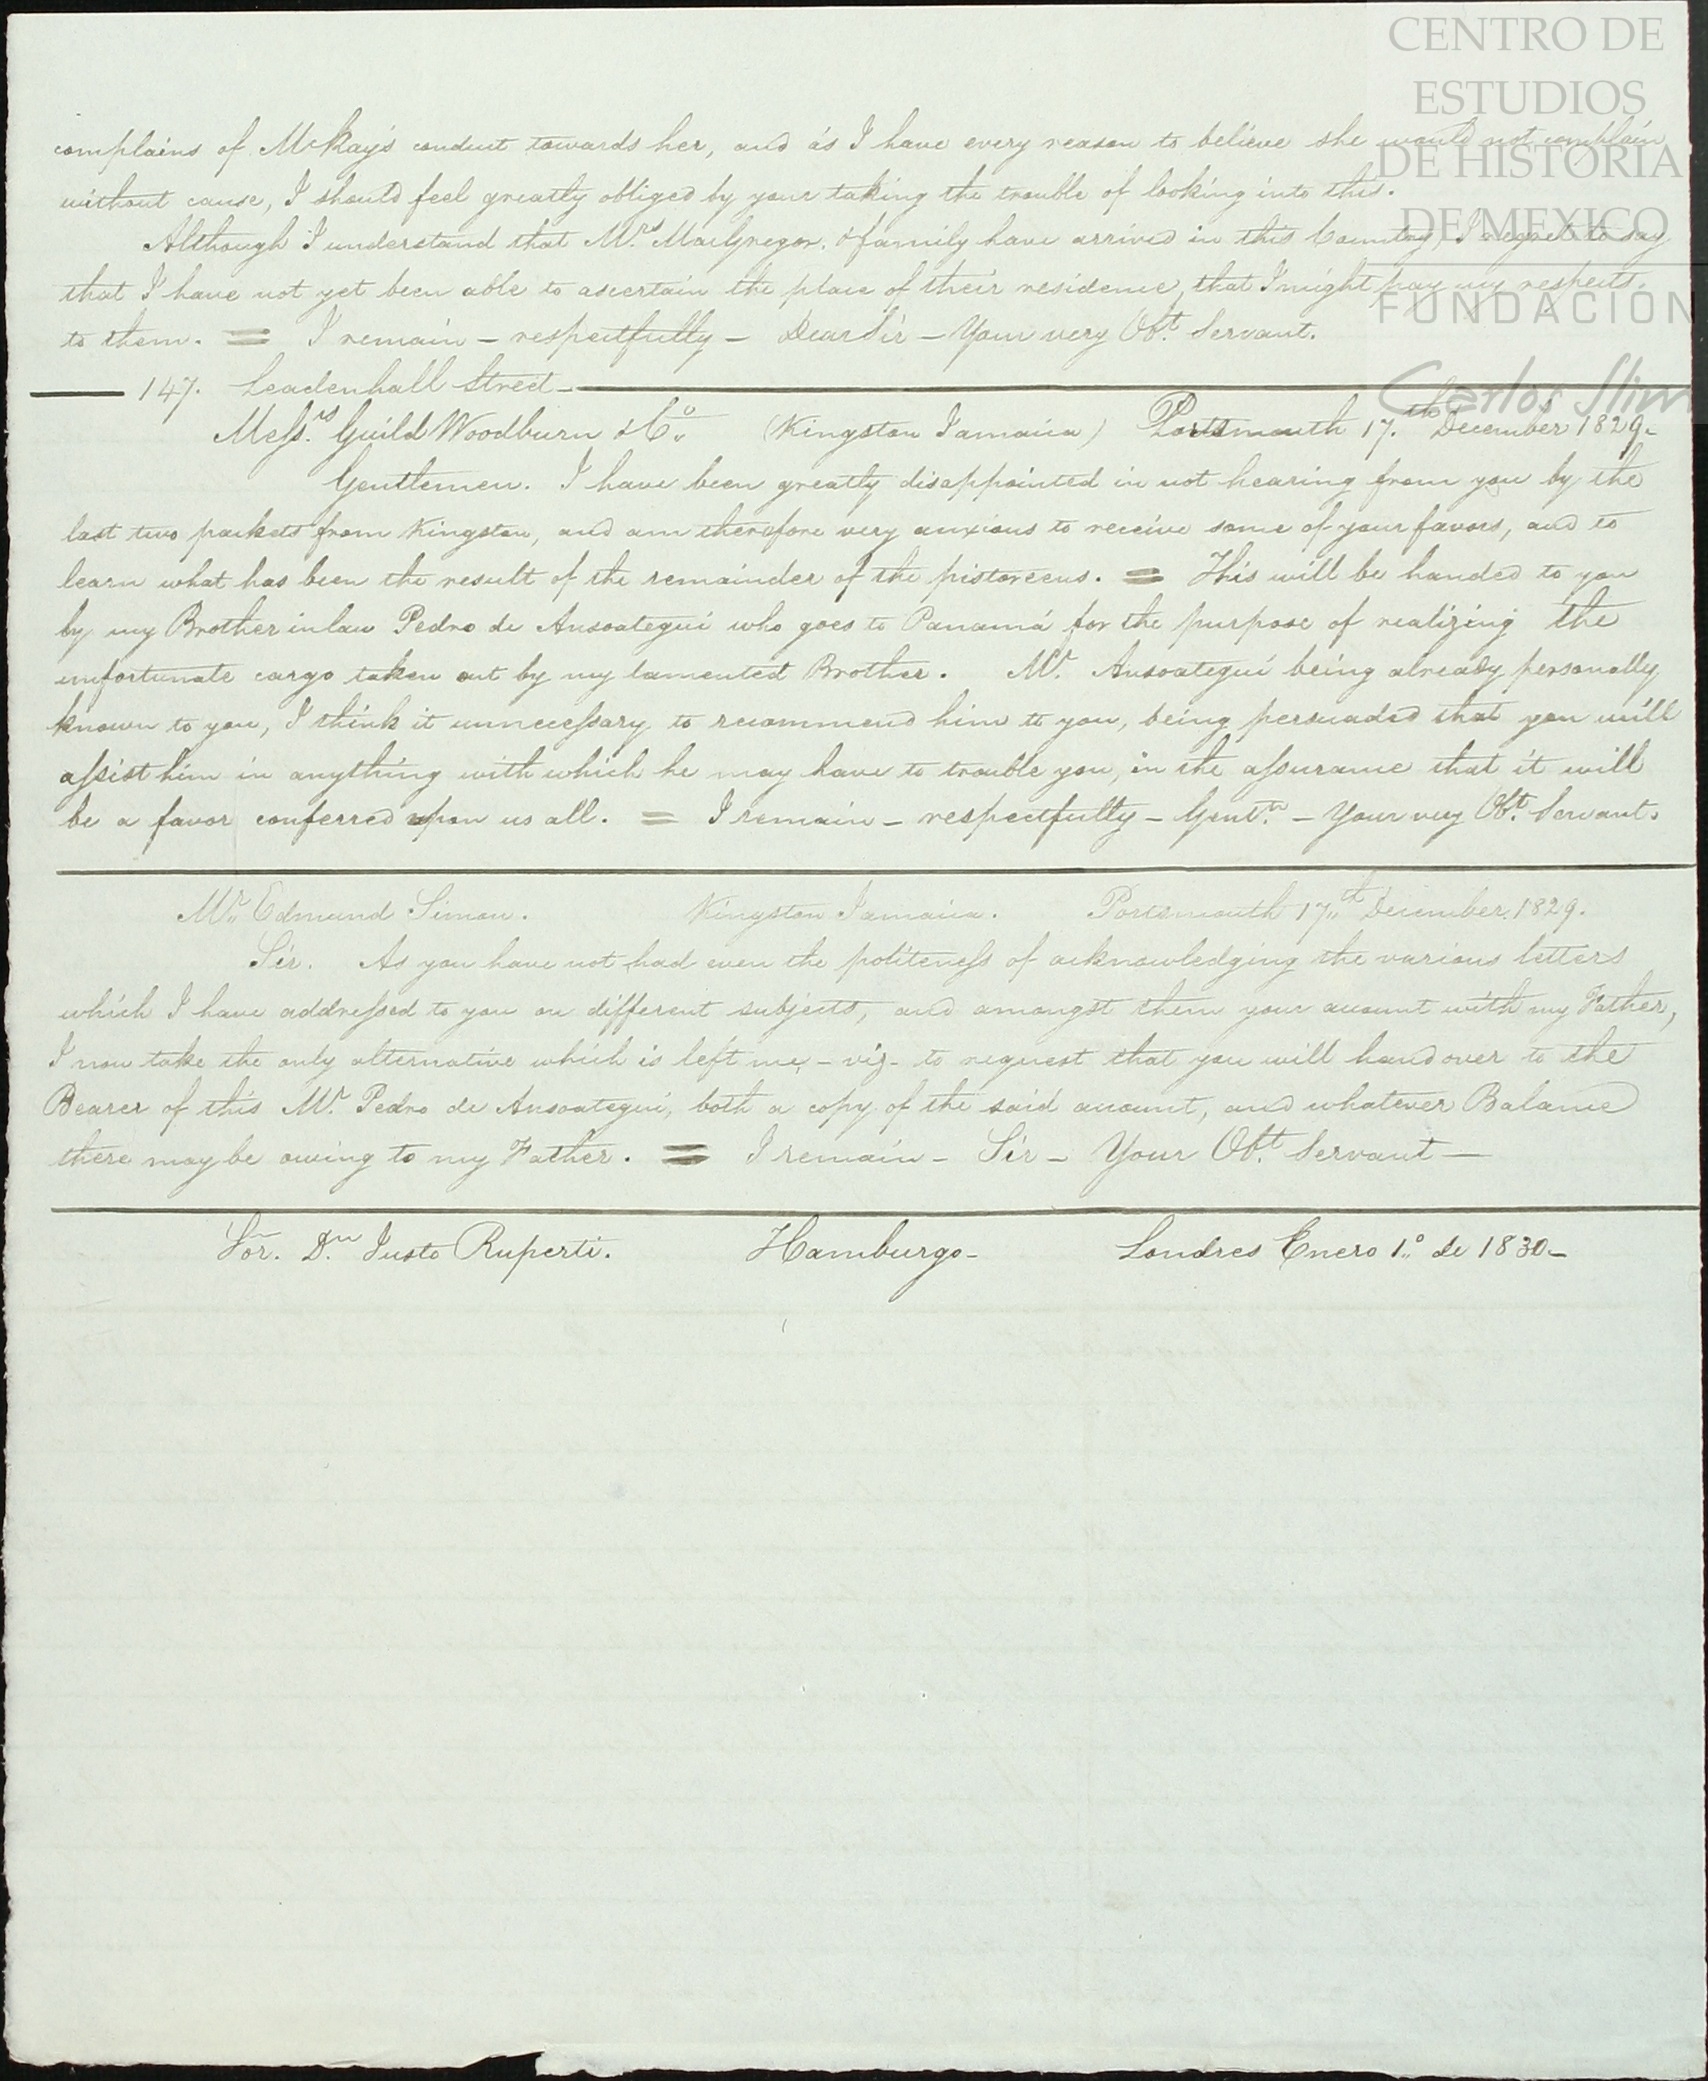 CENTRO DE
ESTUDIOS
DE HISTORIA
DE MEXICO
FUNDACIÓN
Carlos Slim
complains of McKay's conduct towards her, and as I have every reason to believe she would not complain
without cause, I should feel greatly obliged by your taking the trouble of looking into this.
Although I understand that Mrs. MacGregor. & family have arrived in this Country, I regret to say
that I have not yet been able to ascertain the place of their residence, that I might pay my respects.
to them. = I remain – respectfully – Dear Sir – Your very Obt. Servant.
147. Leadenhall Street –
Messrs. Guild Woodburn & Co. (Kingston Jamaica) Portsmouth 17.th December 1829 –
Gentlemen. I have been greatly disappointed in not hearing from you by the
last two packets from Kingston, and am therefore very anxious to receive some of your favors, and to
learn what has been the result of the remainder of the pistoreens. = This will be handed to you
by my Brother in law Pedro de Ansoategui who goes to Panamá for the purpose of realizing the
unfortunate cargo taken out by my lamented Brother. Mr. Ansoategui being already personally
known to you, I think it unnecessary to recommend him to you, being persuaded that you will
assist him in anything with which he may have to trouble you, in the assurance that it will
be a favor conferred upon us all. = I remain – respectfully – Gentn. – Your very Obt. Servant.
Mr. Edmund Simon. Kingston Jamaica. Portsmouth 17th December. 1829.
Sir. As you have not had even the politeness of acknowledging the various letters
which I have addressed to you on different subjects, and amongst them your account with my Father,
I now take the only alternative which is left me, – viz – to request that you will hand over to the
Bearer of this Mr. Pedro de Ansoategui, both a copy of the said account, and whatever Balance
there may be owing to my Father. = I remain – Sir – Your Obt. Servant –
Sor. Dn. Justo Ruperti. Hamburgo – Londres Enero 1.o de 1830 –